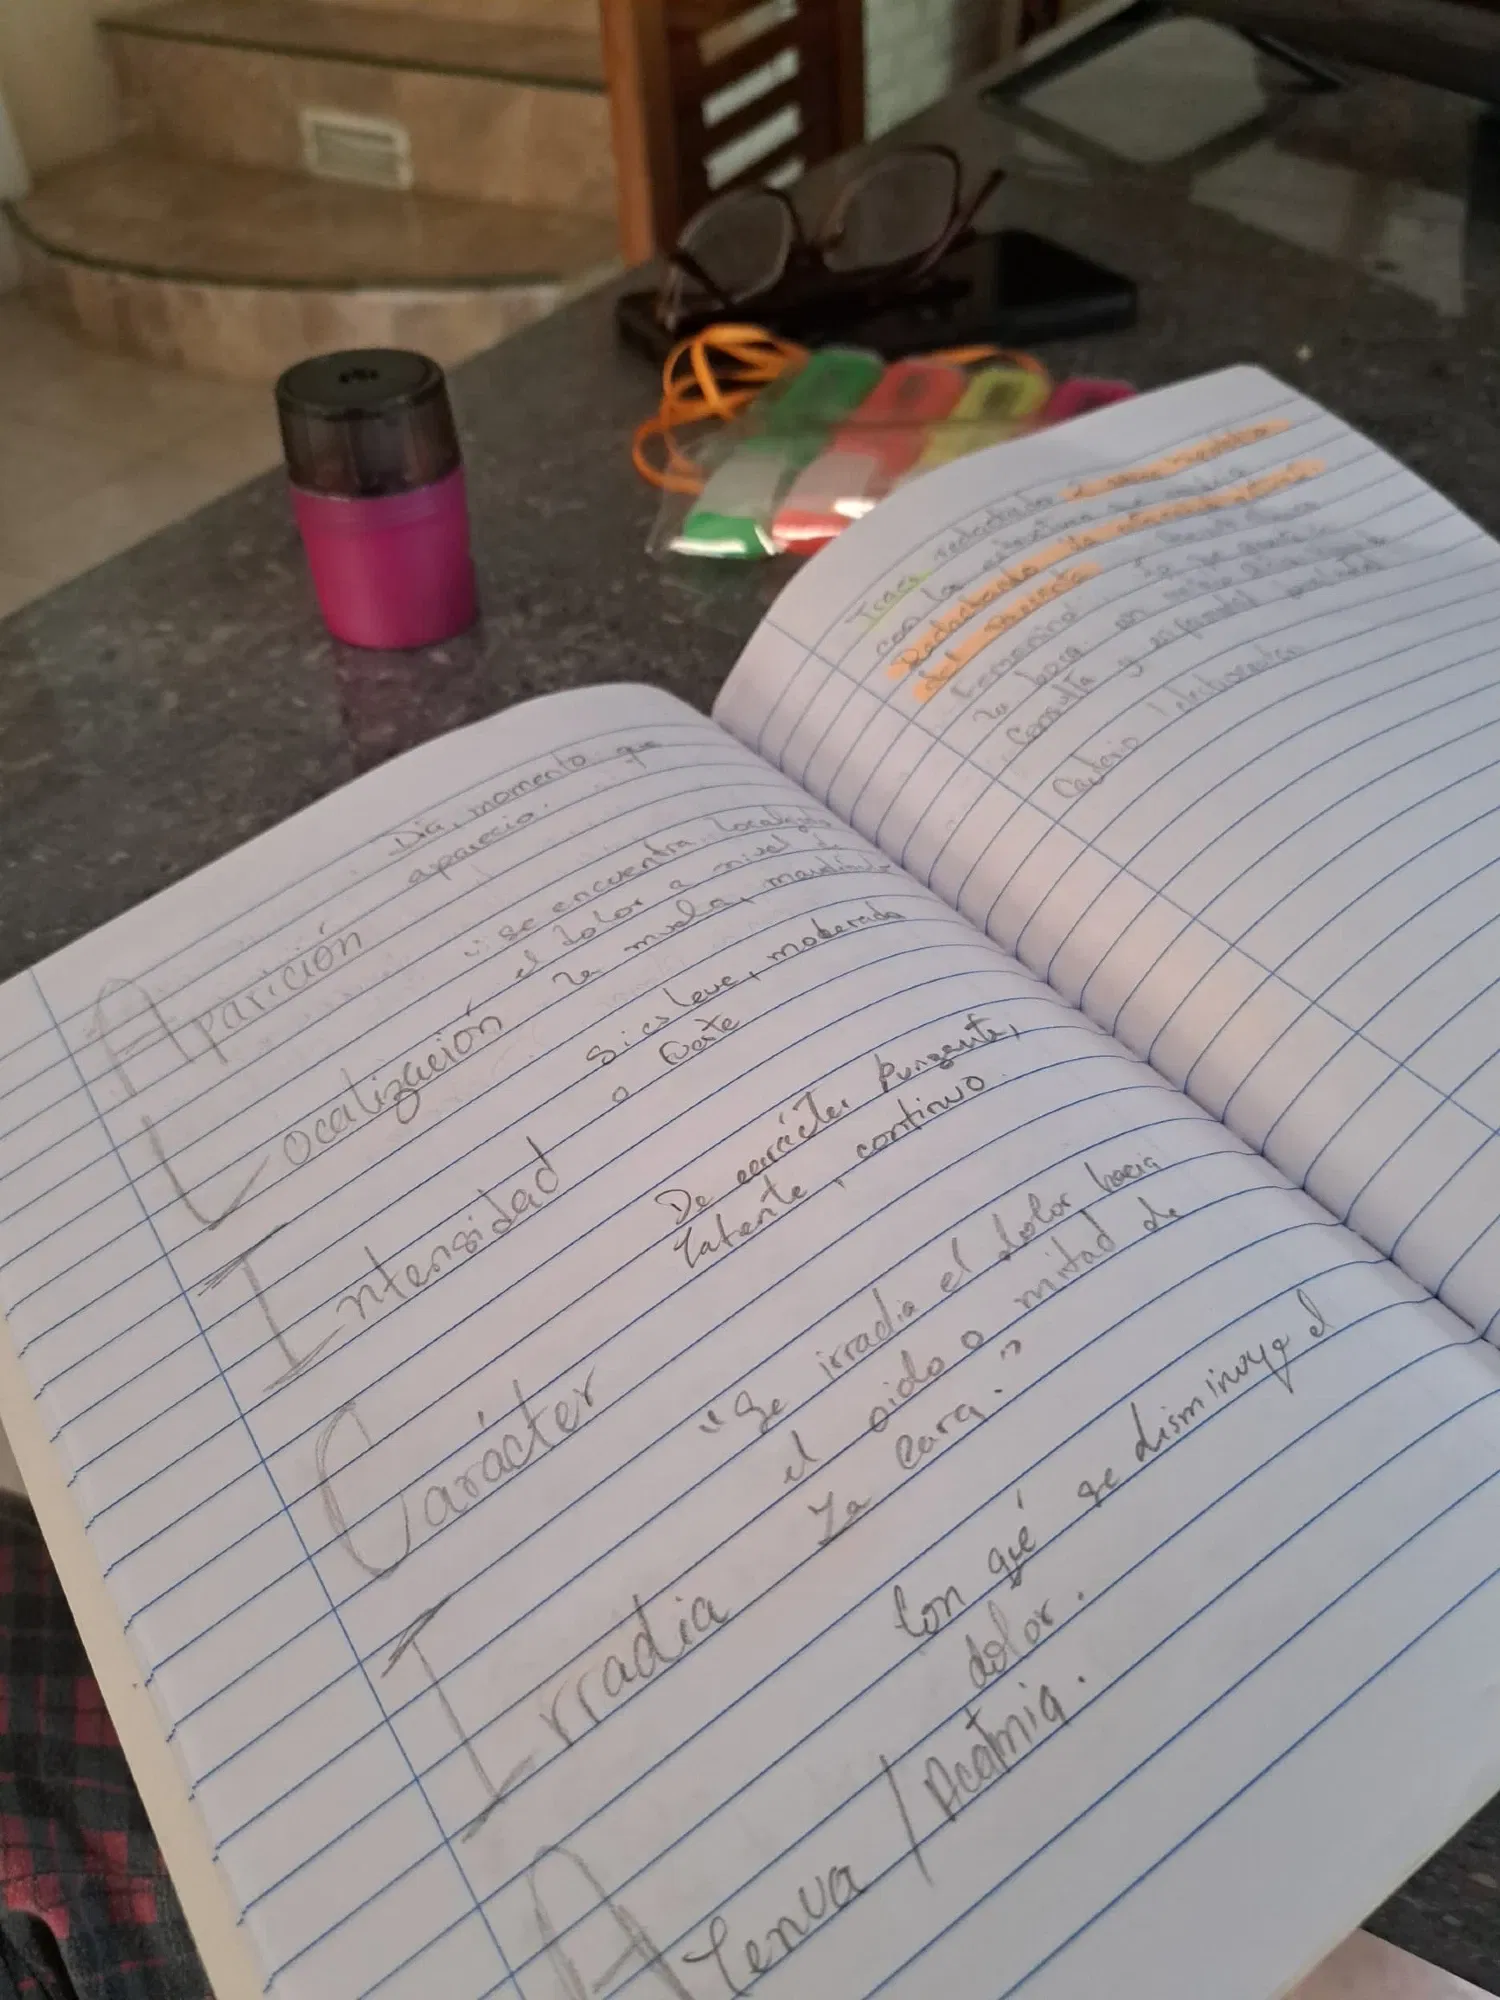 Día, momento que
apareció.
Aparición
"Se encuentra localizado
el dolor a nivel de
la muela, mandíbula
Localización
Si es leve, moderado
o fuerte
Intensidad
De carácter punzante,
latente, continuo
Carácter
"Se irradia el dolor hacia
el oido o mitad de
la cara."
Irradia
Con qué se disminuye el
dolor.
Atenua / Acalmia.
Traer redactado
con la
Redactando la
del paciente
Femenino
la hora
Consulta y enfermedad